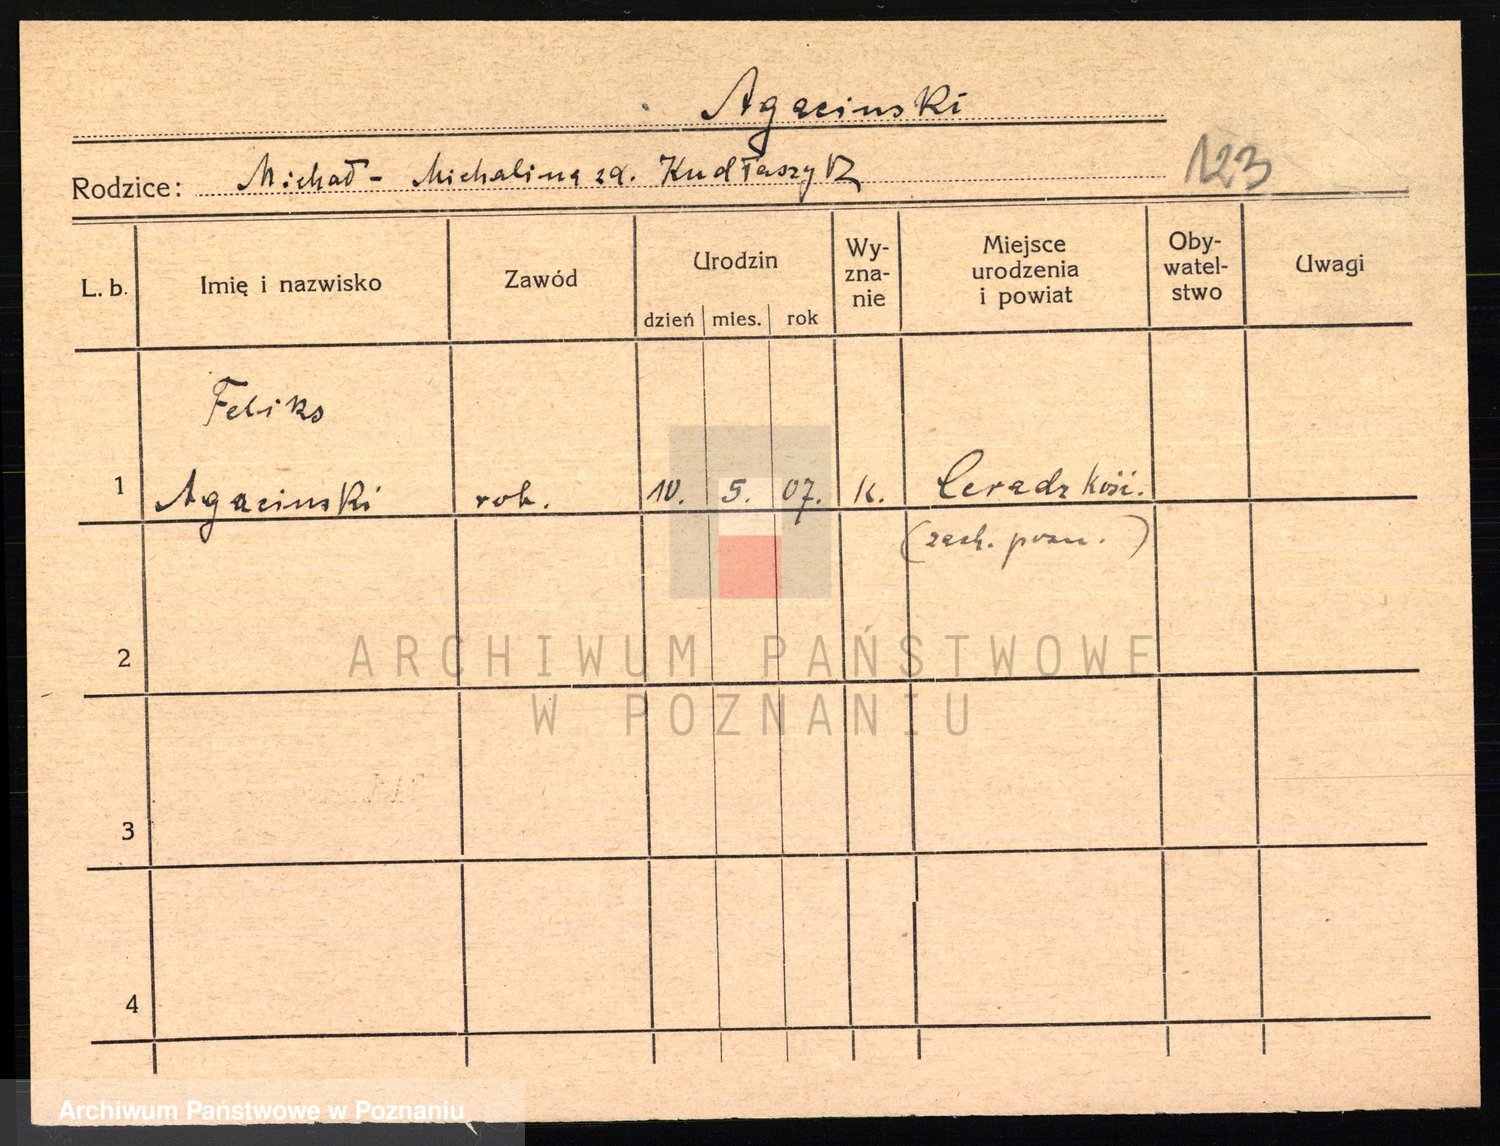 Agacinski
Rodzice: Michał - Michalina zd. Kudłaszyk
123
L. b.
Imię i nazwisko
Zawód
Urodzin
dzień mies. rok
Wy-
zna-
nie
Miejsce
urodzenia
i powiat
Oby-
watel-
stwo
Uwagi
Feliks
1 Agacinski rob. 10. 5. 07. k. Ceradz Kość.
(zach. pozn.)
2
ARCHIWUM PAŃSTWOWE
W POZNANIU
3
4
Archiwum Państwowe w Poznaniu